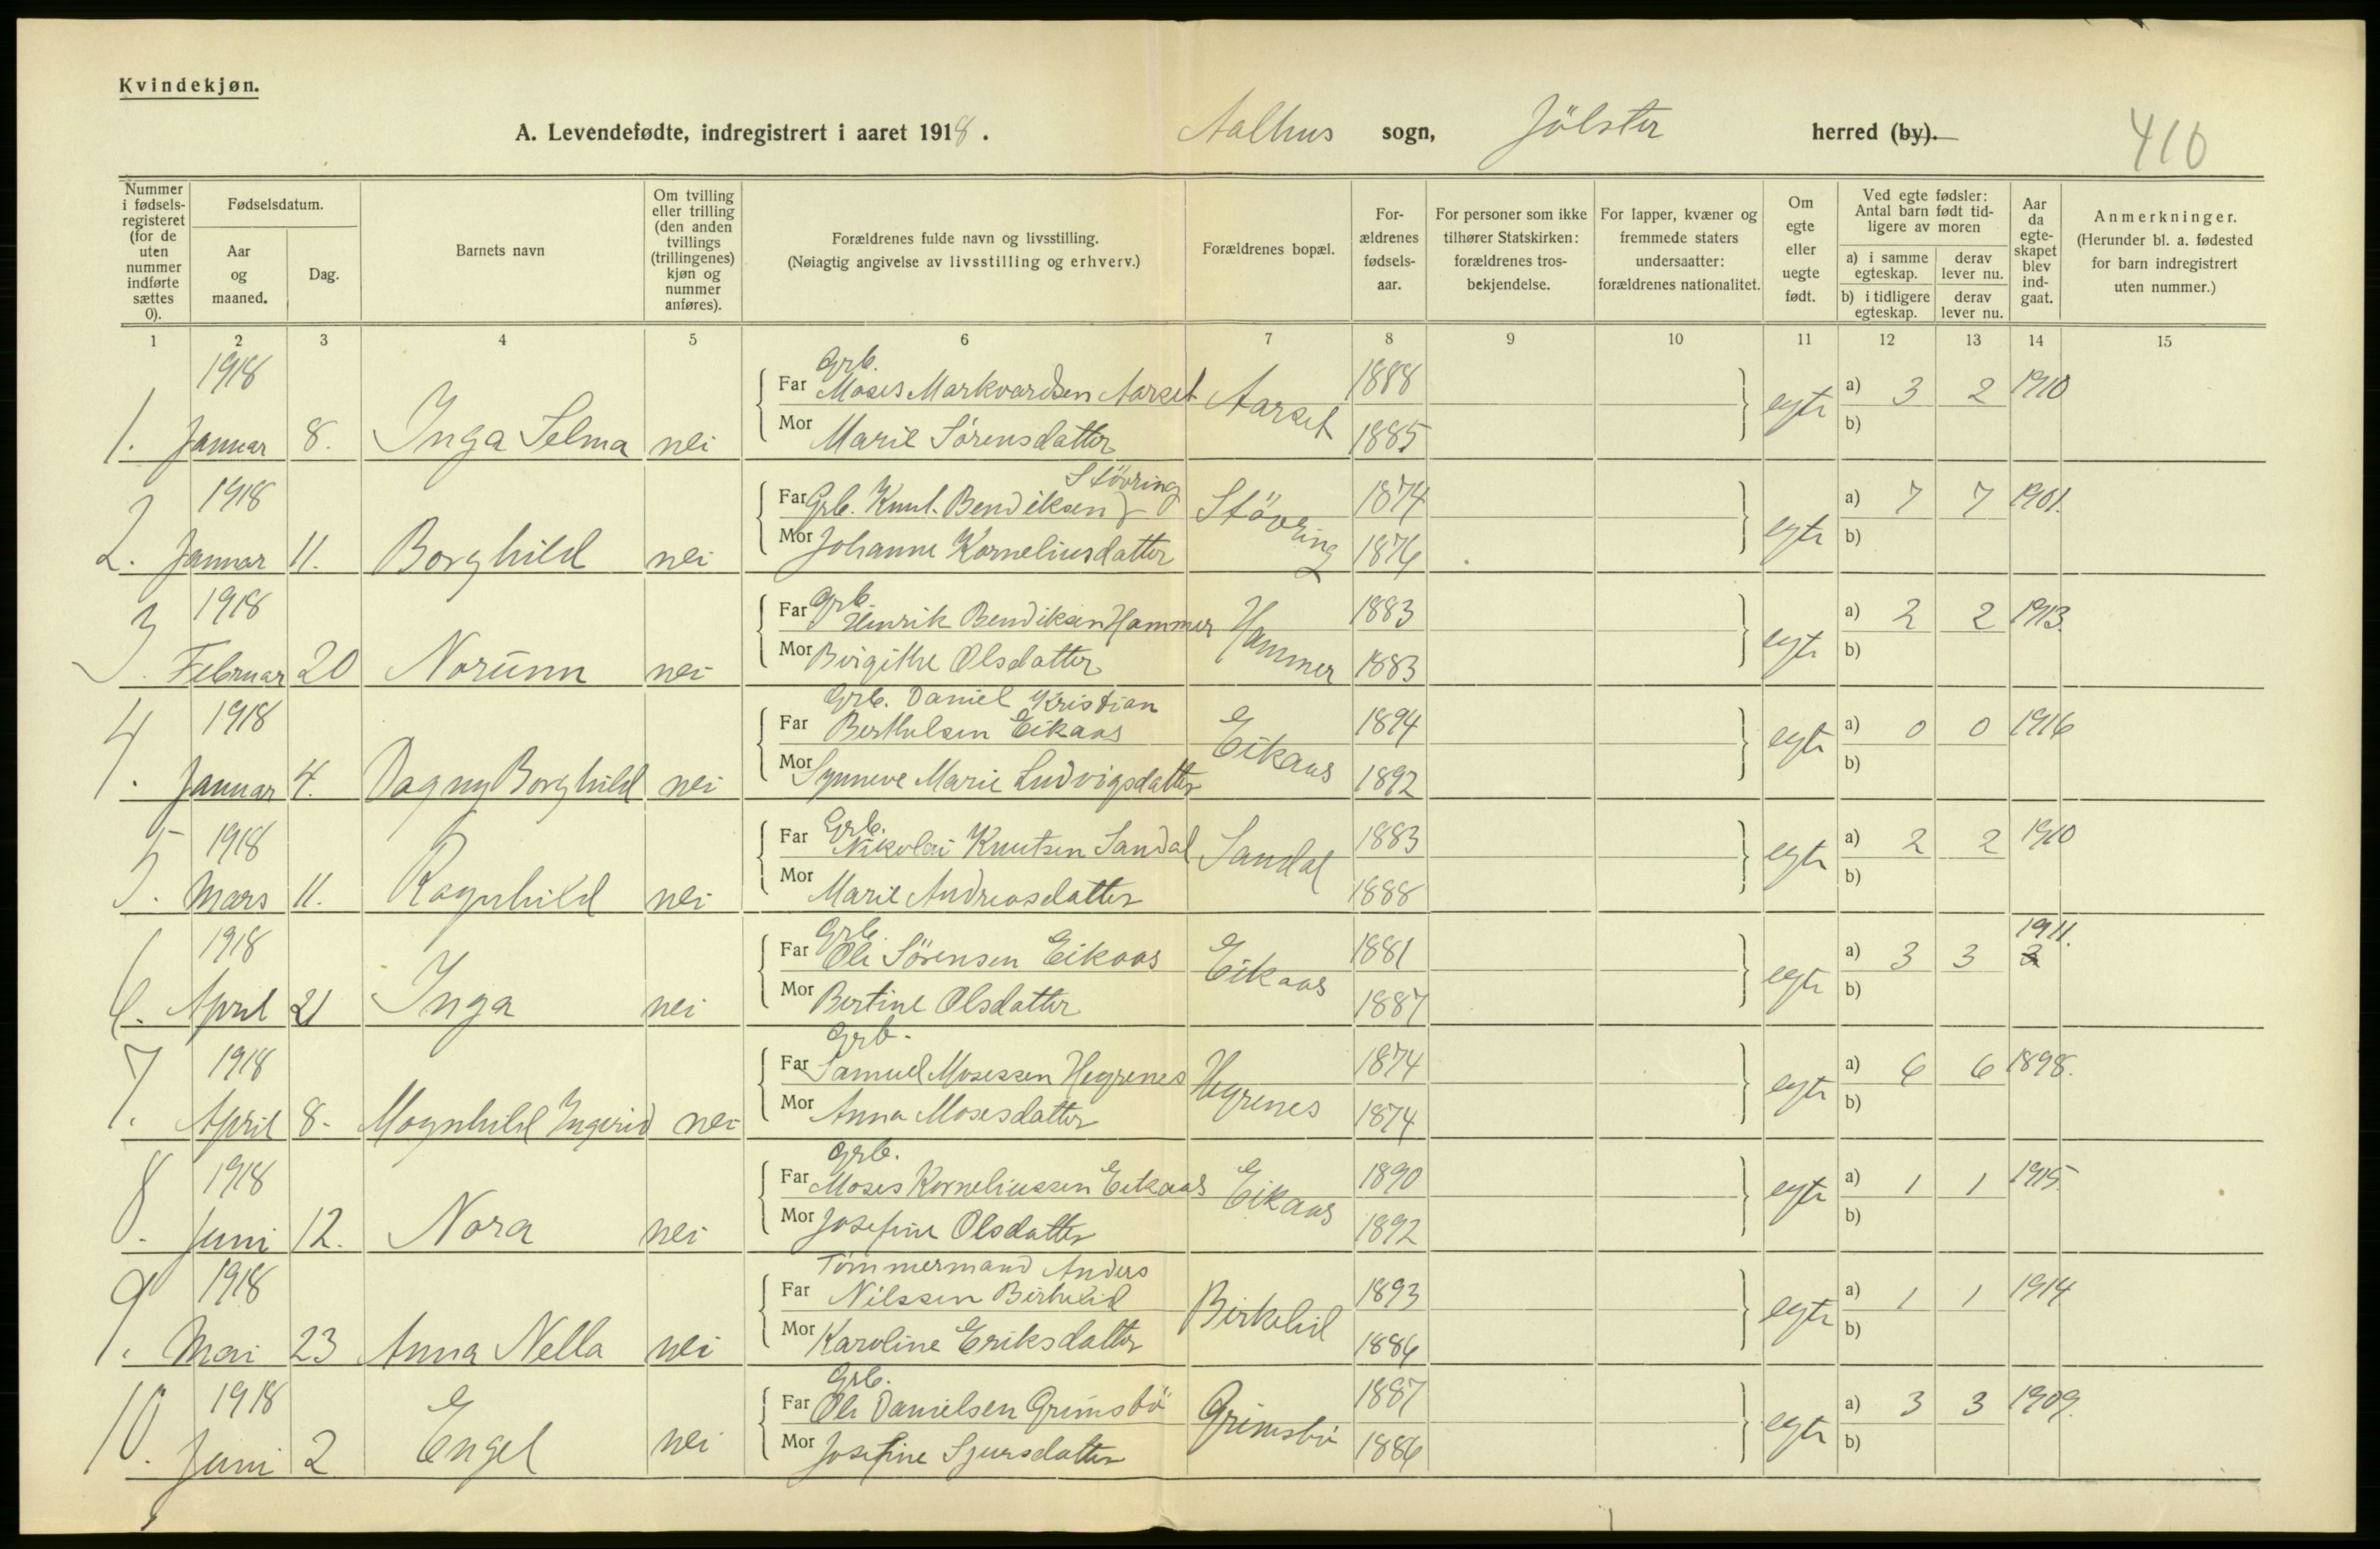 Kvindekjøn.
A. Levendefødte, indregistrert i aaret 1918. Aalhus sogn, Jölster herred (by). 410
Nummer i fødsels-registeret (for de uten nummer indførte sættes 0).
Fødselsdatum.
Aar og maaned.
Dag.
Barnets navn
Om tvilling eller trilling (den anden tvillings (trillingenes) kjøn og nummer anføres).
Forældrenes fulde navn og livsstilling.
(Nøiagtig angivelse av livsstilling og erhverv.)
Forældrenes bopæl.
For-ældrenes fødsels-aar.
For personer som ikke tilhører Statskirken: forældrenes tros-bekjendelse.
For lapper, kvæner og fremmede staters undersaatter: forældrenes nationalitet.
Om egte eller uegte født.
Ved egte fødsler: Antal barn født tid-ligere av moren
a) i samme egteskap.
derav lever nu.
b) i tidligere egteskap.
derav lever nu.
Aar da egte-skapet blev ind-gaat.
Anmerkninger.
(Herunder bl. a. fødested for barn indregistrert uten nummer.)
1 2 3 4 5 6 7 8 9 10 11 12 13 14 15
1918 Grb.
Far Moses Markvardsen Aarset Aarset 1888 egte a) 3 2 1910
1. Januar 8. Inga Selma nei Mor Marie Sörensdatter 1885 b)
1918 Stövring
Far Grb. Knut. Bendiksen Stövring 1874 egte a) 7 7 1901.
2. Januar 11. Borghild nei Mor Johanne Korneliusdatter 1876 b)
1918 Grb.
Far Henrik Bendiksen Hammer Hammer 1883 egte a) 2 2 1913.
3. Februar 20 Norunn nei Mor Birgithe Olsdatter 1883 b)
1918 Grb. Daniel Kristian
Far Berthelsen Eikaas Eikaas 1894 egte a) 0 0 1916
4. Januar 4. Dagny Borghild nei Mor Synneve Marie Ludvigsdatter 1892 b)
1918 Grb.
Far Nikolai Knutsen Sandal Sandal 1883 egte a) 2 2 1910
5. Mars 11. Ragnhild nei Mor Marie Andreasdatter 1888 b)
1918 Grb. 1911.
Far Ole Sörensen Eikaas Eikaas 1881 egte a) 3 3 3
6. April 21 Inga nei Mor Bertine Olsdatter 1887 b)
1918 Grb.
Far Samuel Mosessen Hegrenes Hegrenes 1874 egte a) 6 6 1898.
7. April 8. Magnhild Ingerid nei Mor Anna Mosesdatter 1874 b)
1918 Grb.
Far Moses Korneliussen Eikaas Eikaas 1890 egte a) 1 1 1915.
8. Juni 12. Nora nei Mor Josefine Olsdatter 1892 b)
1918 Tömmermand Anders
Far Nilssen Birkelid Birkelid 1893 egte a) 1 1 1914
9. Mai 23 Anna Nella nei Mor Karoline Eriksdatter 1886 b)
1918 Grb.
Far Ole Danielsen Grimsbö Grimsbö 1887 egte a) 3 3 1909.
10. Juni 2 Engel nei Mor Josefine Sjursdatter 1886 b)